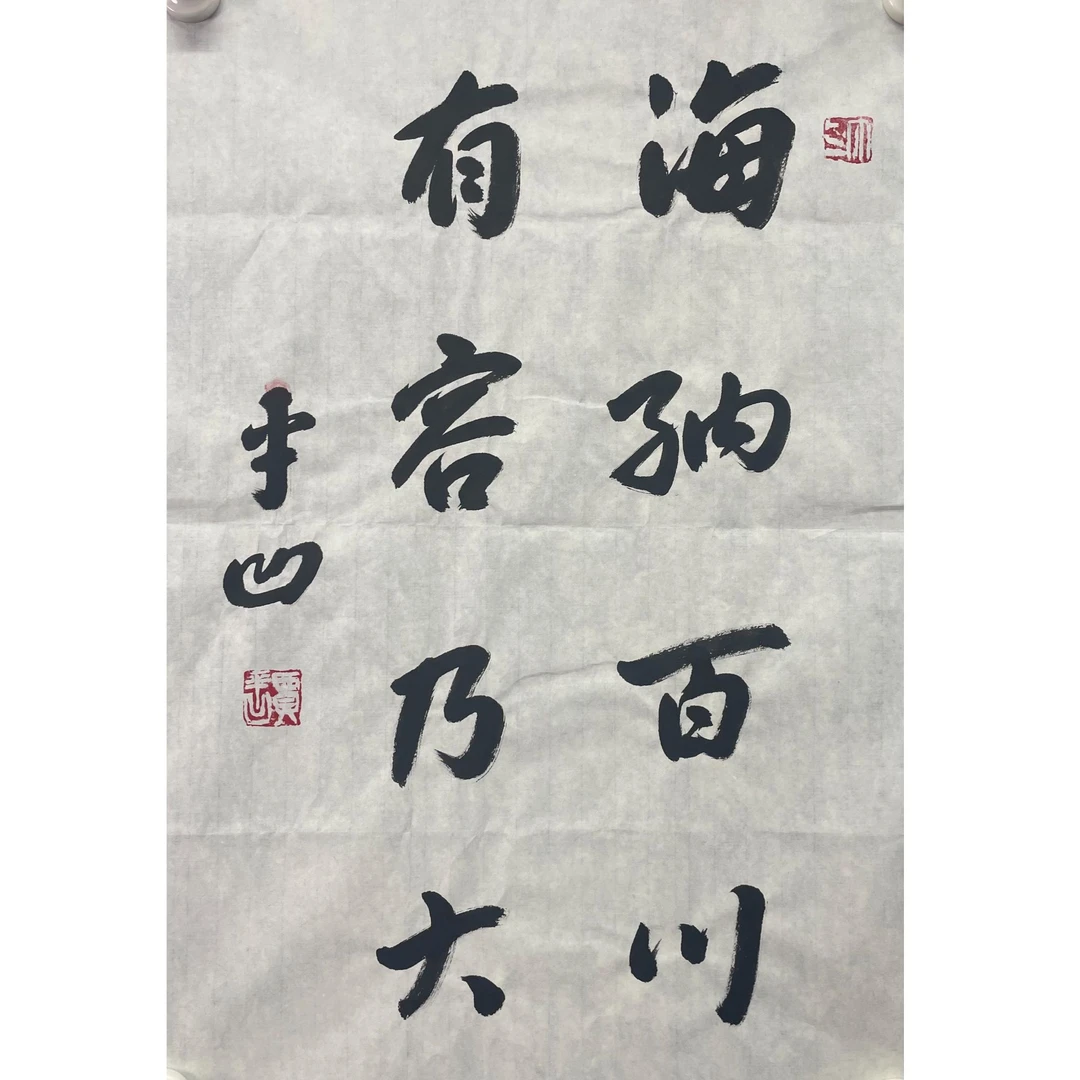 海纳百川
有容乃大
平凹